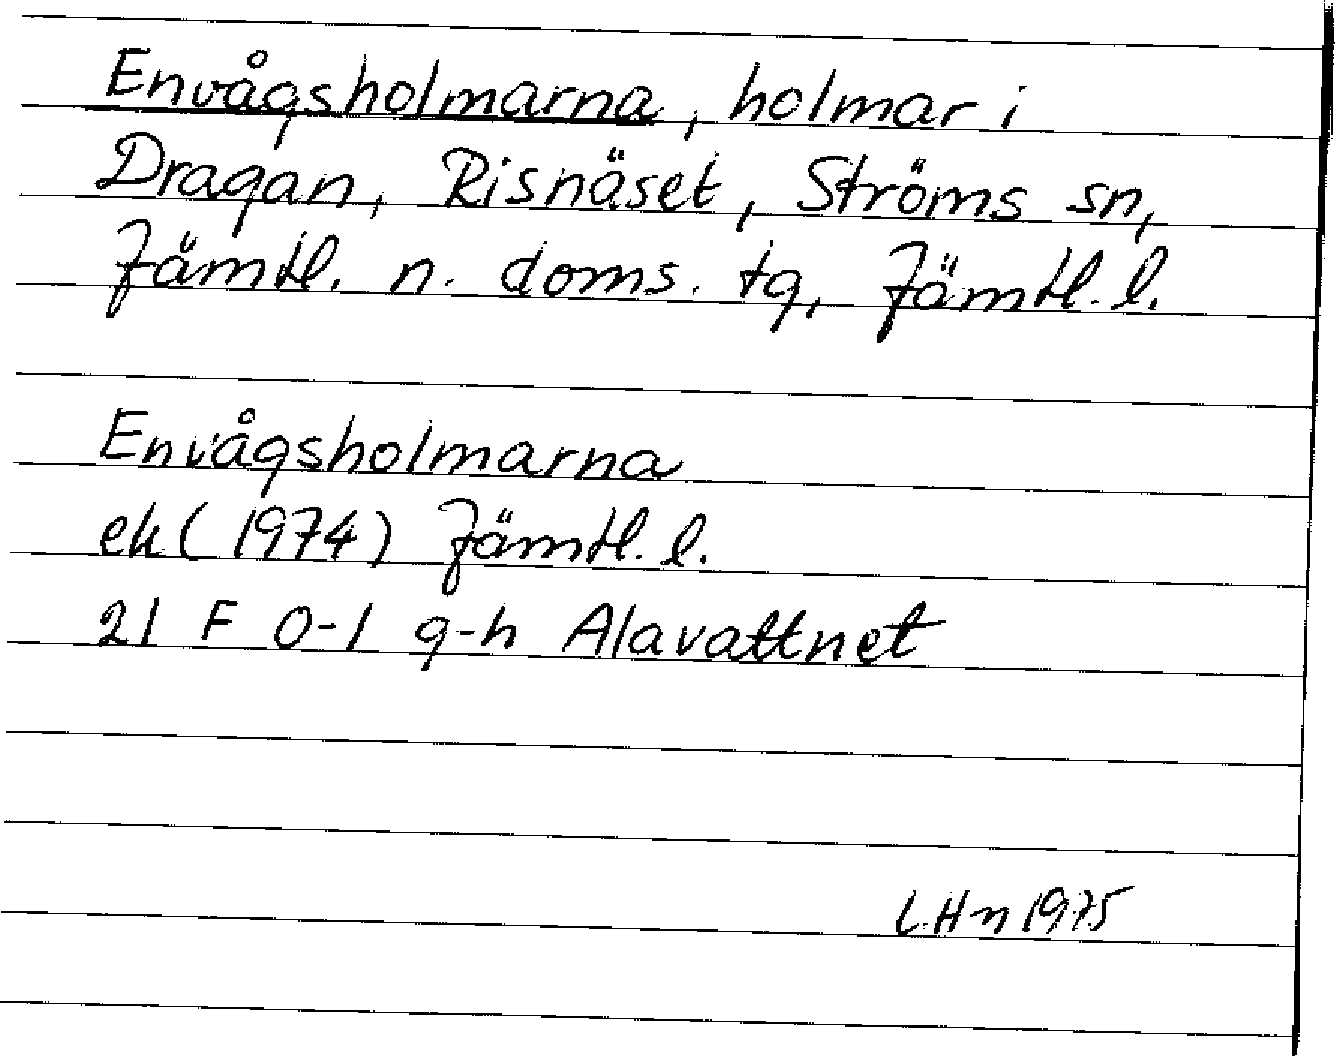 Envågsholmarna, holmar i
Dragan, Risnäset, Ströms sn,
Jämtl. n. doms. tg, Jämtl. l.
Envågsholmarna
ek (1974) Jämtl. l.
21 F 0-1 g-h Alavattnet
L.Hn 1975